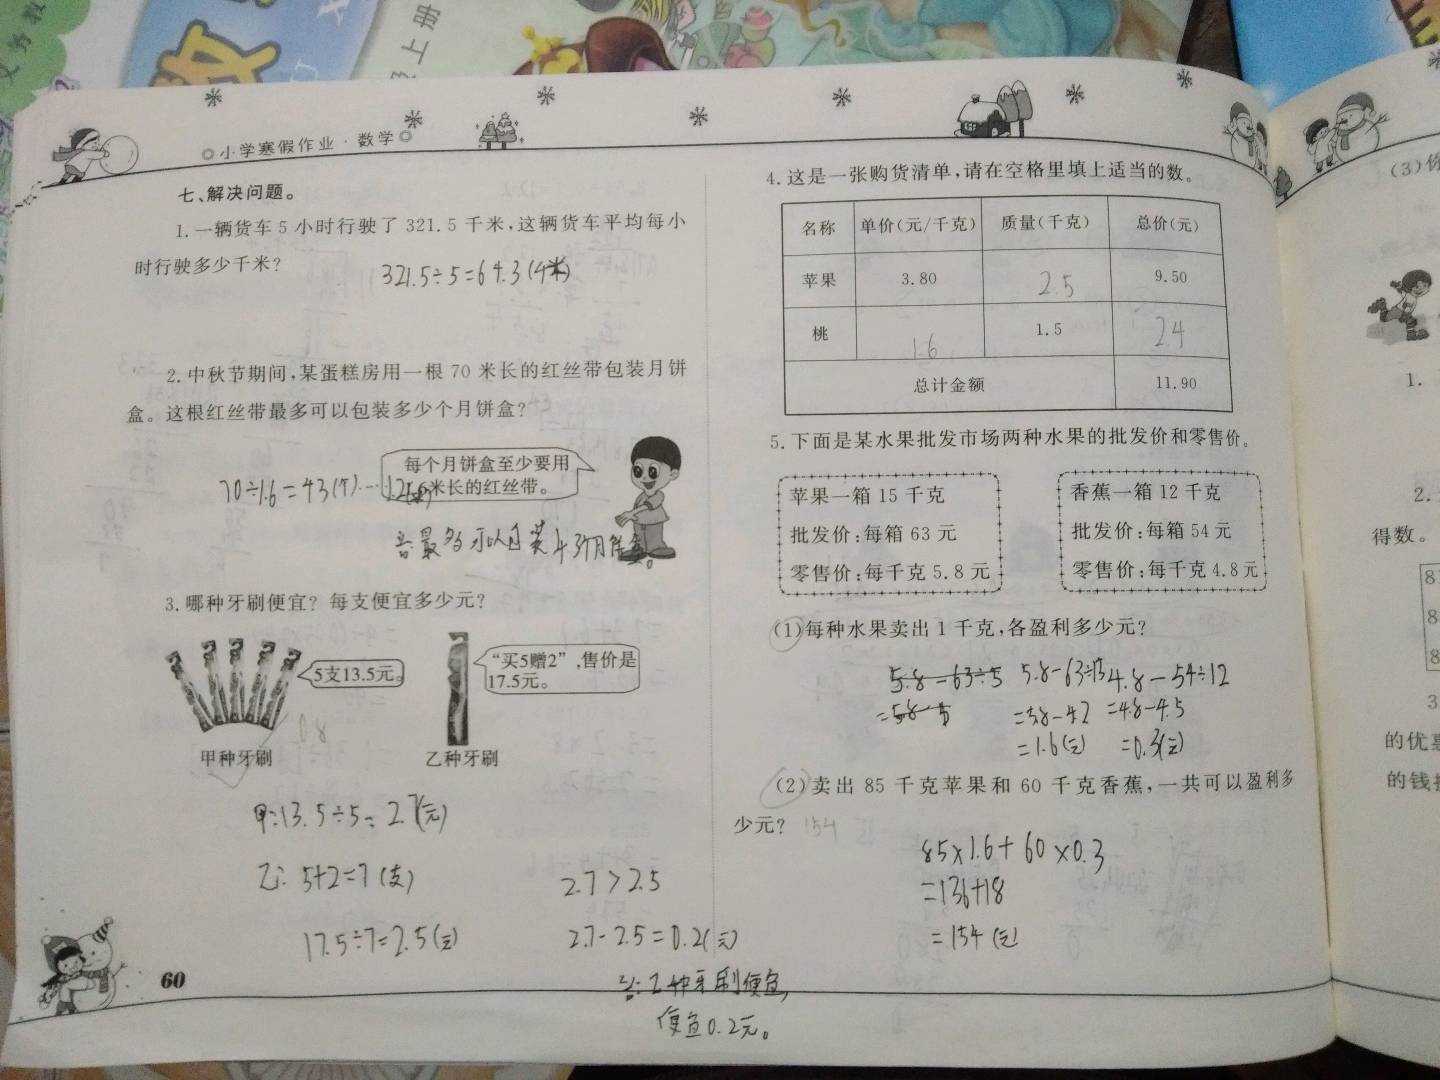 上册
◎小学寒假作业·数学◎
七、解决问题。
1.一辆货车5小时行驶了321.5千米,这辆货车平均每小
时行驶多少千米?
321.5÷5=64.3(千米)
2.中秋节期间,某蛋糕房用一根70米长的红丝带包装月饼
盒。这根红丝带最多可以包装多少个月饼盒?
每个月饼盒至少要用
米长的红丝带。
70÷1.6=43(个)
3.哪种牙刷便宜?每支便宜多少元?
5支13.5元。
“买5赠2”,售价是
17.5元。
甲种牙刷
乙种牙刷
甲:13.5÷5=2.7(元)
乙:5+2=7(支)
17.5÷7=2.5(元)
2.7>2.5
2.7-2.5=0.2(元)
答:乙种牙刷便宜,
便宜0.2元。
60
4.这是一张购货清单,请在空格里填上适当的数。
名称 单价(元/千克) 质量(千克) 总价(元)
苹果 3.80 2.5 9.50
桃 1.6 1.5 2.4
总计金额 11.90
5.下面是某水果批发市场两种水果的批发价和零售价。
苹果一箱15千克
批发价:每箱63元
零售价:每千克5.8元
香蕉一箱12千克
批发价:每箱54元
零售价:每千克4.8元
(1)每种水果卖出1千克,各盈利多少元?
5.8-63÷5
5.8-63÷15
=5.8-4.2
=1.6(元)
4.8-54÷12
=4.8-4.5
=0.3(元)
(2)卖出85千克苹果和60千克香蕉,一共可以盈利多
少元? 154
85×1.6+60×0.3
=136+18
=154(元)
(3)你
1.
2.
得数。
8
8
8
3
的优惠
的钱